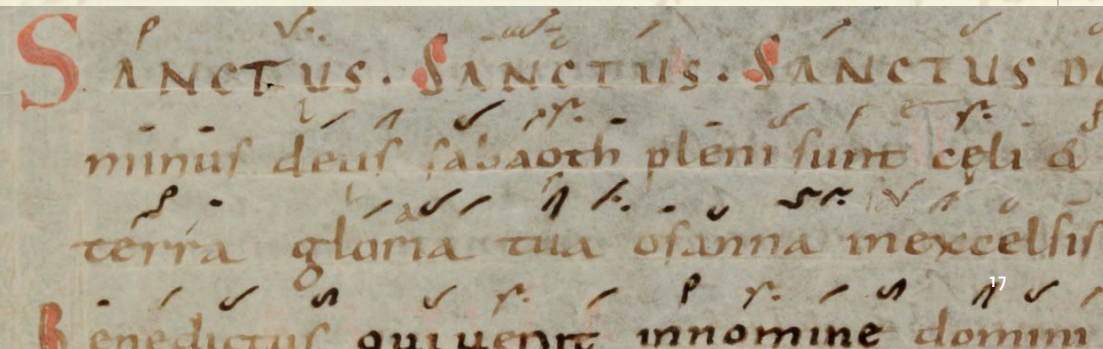 SANCTUS. SANCTUS. SANCTUS DO
minus deus sabaoth pleni sunt cęli &
terra gloria tua osanna inexcelsis
Benedictus qui uenit innomine domini
17